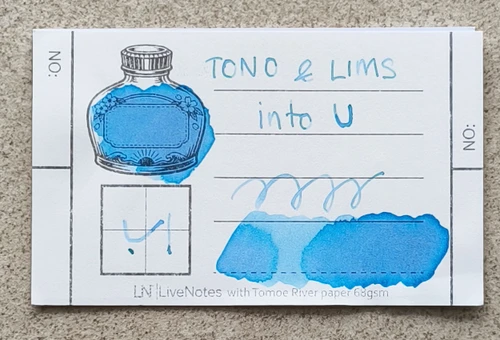 NO:
TONO & LIMS
into U
NO:
LN LiveNotes with Tomoe River paper 68gsm